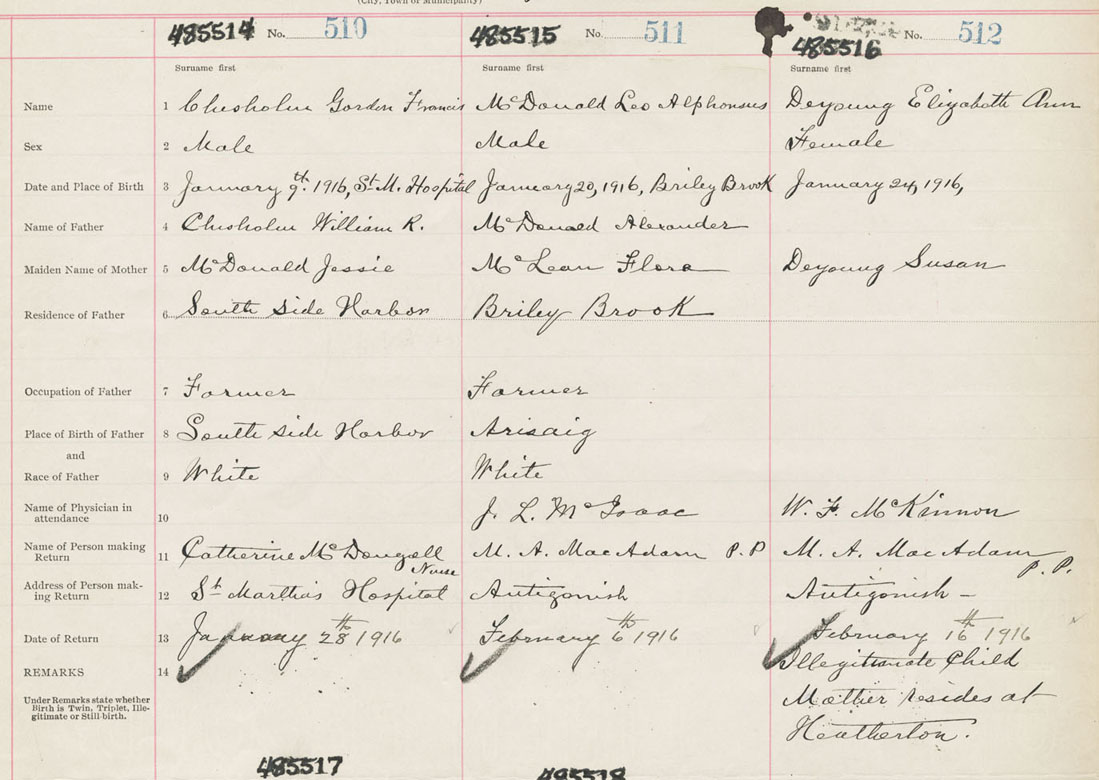 (City, Town or Municipality)
485514 No. 510 485515 No. 511 485516 No. 512
Surname first Surname first Surname first
Name 1 Chisholm Gordon Francis McDonald Leo Alphonsus Deyoung Elizabeth Ann
Sex 2 Male Male Female
Date and Place of Birth 3 January 9th. 1916, St M. Hospital January 20, 1916, Briley Brook January 24, 1916,
Name of Father 4 Chisholm William R. McDonald Alexander
Maiden Name of Mother 5 McDonald Jessie McLean Flora Deyoung Susan
Residence of Father 6 South side Harbor Briley Brook
Occupation of Father 7 Farmer Farmer
Place of Birth of Father 8 South side Harbor Arisaig
and
Race of Father 9 White White
Name of Physician in
attendance 10 J. L. McIsaac W. F. McKinnon
Name of Person making
Return 11 Catherine McDougall Nurse M. A. MacAdam P.P M. A. MacAdam P.P.
Address of Person mak-
ing Return 12 St Martha's Hospital Antigonish Antigonish –
Date of Return 13 January 28th 1916 February 6th 1916 February 16th 1916
REMARKS 14 Illegitimate Child
Under Remarks state whether
Birth is Twin, Triplet, Ille-
gitimate or Still-birth.
Mother resides at
Heatherton.
485517 485518